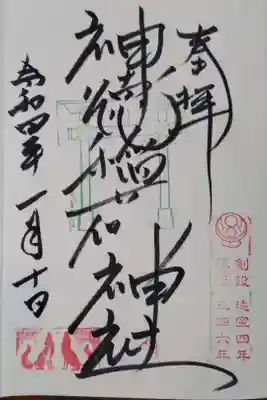 奉拝
神徳稲荷神社
令和四年一月十日
創設 延宝四年
三四六年